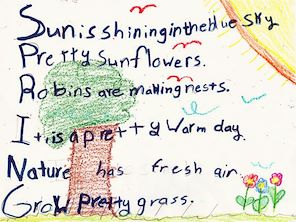 Sun is shining in the blue sky
Pretty sunflowers.
Robins are making nests.
It is a pretty warm day.
Nature has fresh air.
Grow pretty grass.